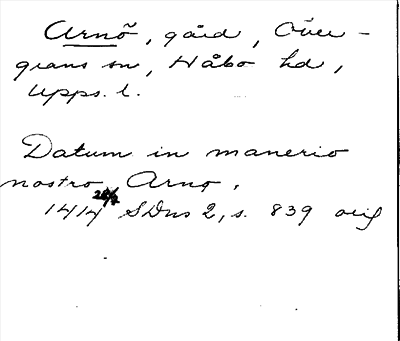 Arnö, gård, Över-
grans sn, Håbo hd,
Upps. l.
Datum in manerio
nostro Arnø,
1414 28/2 SDns 2, s. 839 orig